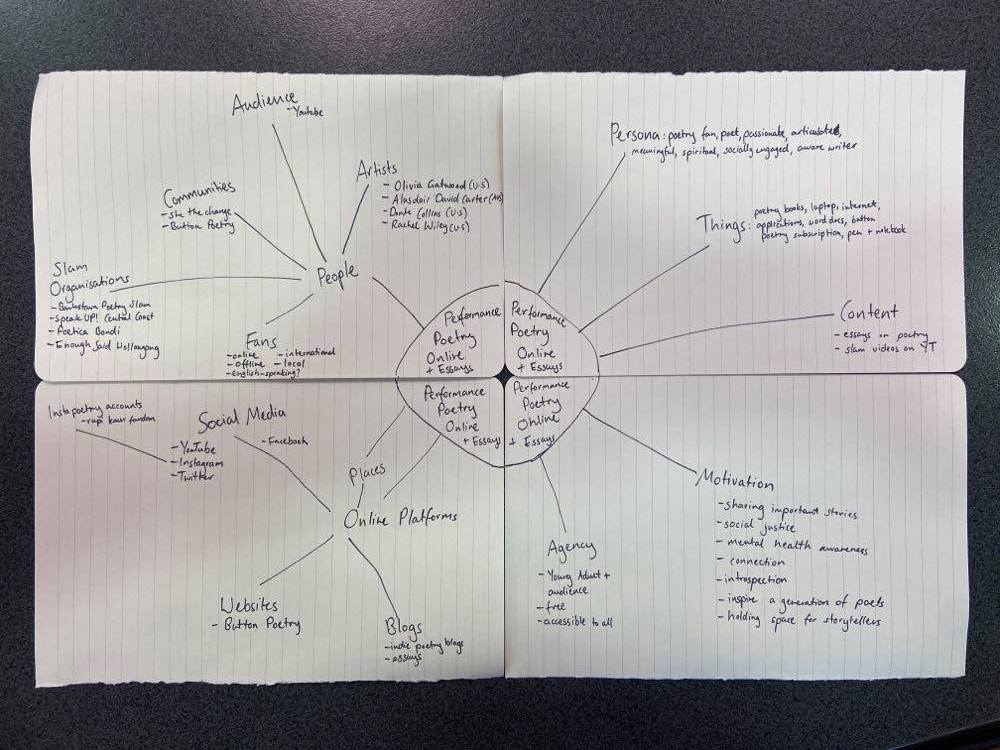 Audience
- Youtube
Artists
- Olivia Gatwood (U.S)
- Alasdair David Carter (Aus)
- Donte Collins (U.S)
- Rachel Wiley (U.S)
Communities
- She the change
- Button Poetry
People
Slam
Organisations
- Bankstown Poetry Slam
- Speak UP! Central Coast
- Poetica Bondi
- Enough Said Wollongong
Fans
- online - international
- offline - local
- english-speaking?
Performance
Poetry
Online
+ Essays
Persona: poetry fan, poet, passionate, articulated,
meaningful, spiritual, socially engaged, aware writer
Things: poetry books, laptop, internet,
applications, word docs, button
poetry subscription, pen + notebook
Content
- essays on poetry
- slam videos on YT
Performance
Poetry
Online
+ Essays
Instapoetry accounts
- rupi kaur fandom
Social Media
- Facebook
- YouTube
- Instagram
- Twitter
Places
Online Platforms
Websites
- Button Poetry
Blogs
- indie poetry blogs
- essays
Performance
Poetry
Online
+ Essays
Performance
Poetry
Online
+ Essays
Agency
- Young Adult +
audience
- free
- accessible to all
Motivation
- sharing important stories
- social justice
- mental health awareness
- connection
- introspection
- inspire a generation of poets
- holding space for storytellers